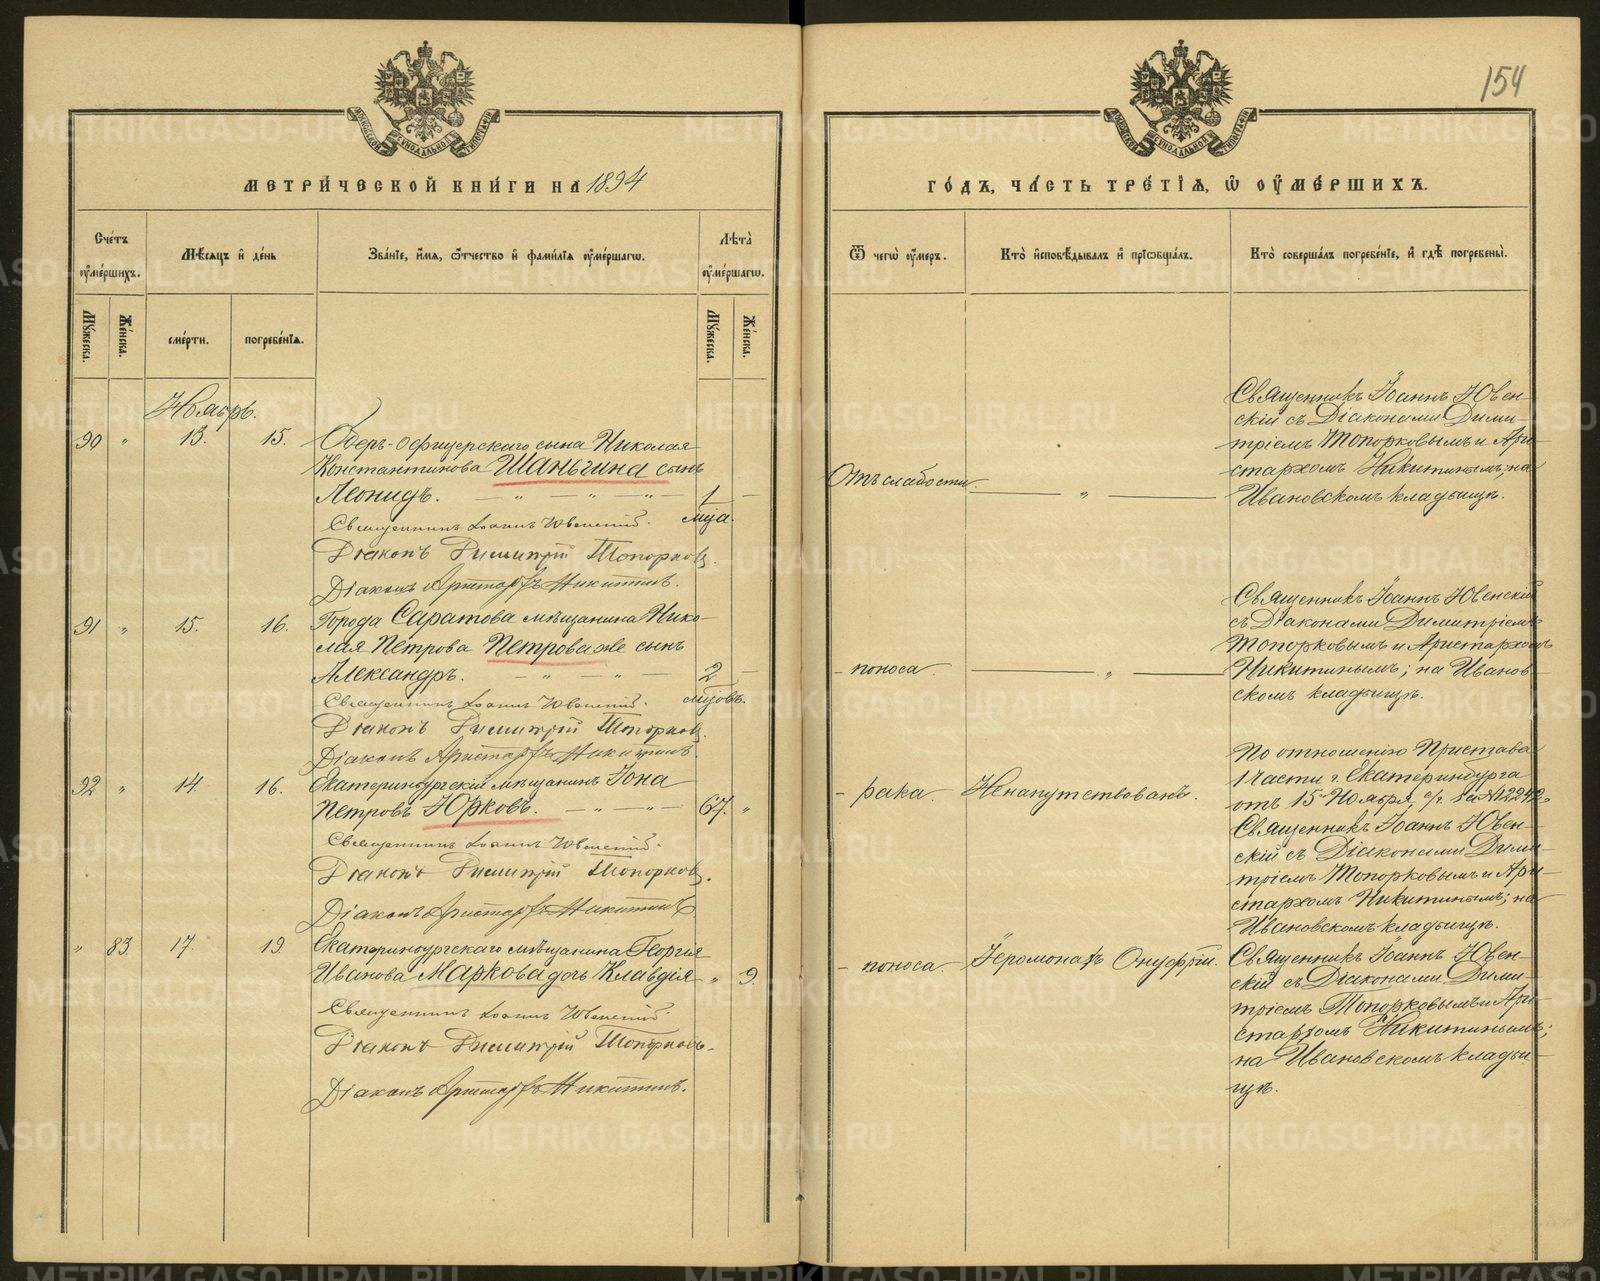 154
МЕТРИ́ЧЕСКОЙ КНИ́ГИ НА 1894
ГО́ДЪ, ЧА́СТЬ ТРЕ́ТІѦ, Ѡ ОУ҆МЕ́РШИХЪ.
Сче́тъ оу҆ме́ршихъ.
Мѣ́сѧцъ и҆ де́нь
Зва́нїе, и҆́мѧ, ѻ҆́тчество и҆ фами́лїѧ оу҆ме́ршагѡ.
Лѣ́та оу҆ме́ршагѡ.
Ѿ чегѡ̀ оу҆́меръ.
Кто̀ и҆сповѣ́дывалъ и҆ прїѡбща́лъ.
Кто̀ соверша́лъ погребе́нїе, и҆ гдѣ̀ погребены̀.
Мꙋ́жеска.
Же́нска.
сме́рти.
погребе́нїѧ.
Мꙋ́жеска.
Же́нска.
Ноябрь.
90 " 13. 15. Оберъ-офицерскаго сына Николая
Константинова Шаньгина сынъ
Леонидъ. — " — " — " — 1 —
мца.
Священникъ Іоаннъ Ювенскій.
Діаконъ Димитрій Топорковъ.
Діаконъ Аристархъ Никитинъ.
Отъ слабости — " —
Священникъ Іоаннъ Ювен-
скій съ Діаконами Дими-
тріемъ Топорковымъ и Ари-
стархомъ Никитинымъ; на
Ивановскомъ кладбищѣ.
91 " 15. 16. Города Саратова мѣщанина Нико-
лая Петрова Петрова же сынъ
Александръ. — " — " — 2 —
мцовъ.
Священникъ Іоаннъ Ювенскій.
Діаконъ Димитрій Топорковъ.
Діаконъ Аристархъ Никитинъ.
- поноса. — " —
Священникъ Іоаннъ Ювенскій
съ Діаконами Димитріемъ
Топорковымъ и Аристархомъ
Никитинымъ; на Иванов-
скомъ кладбищѣ.
92 " 14. 16. Екатеринбургскій мѣщанинъ Іона
Петровъ Юрковъ. — " — " — 67. "
Священникъ Іоаннъ Ювенскій.
Діаконъ Димитрій Топорковъ.
Діаконъ Аристархъ Никитинъ
- рака. Ненапутствованъ.
По отношенію Пристава
1 части г. Екатеринбурга
отъ 15 Ноября, с/г. за № 12242
Священникъ Іоаннъ Ювен-
скій съ Діаконами Дими-
тріемъ Топорковымъ и Ари-
стархомъ Никитинымъ; на
Ивановскомъ кладбищѣ.
" 83. 17. 19 Екатеринбургскаго мѣщанина Георгія
Иванова Маркова дочь Клавдія — " 9.
Священникъ Іоаннъ Ювенскій.
Діаконъ Димитрій Топорковъ.
Діаконъ Аристархъ Никитинъ.
- поноса. Іеромонахъ Онуфрій.
Священникъ Іоаннъ Ювен-
скій съ Діаконами Дими-
тріемъ Топорковымъ и Ари-
стархомъ Никитинымъ;
на Ивановскомъ кладби-
щѣ.
METRIKI.GASO-URAL.RU